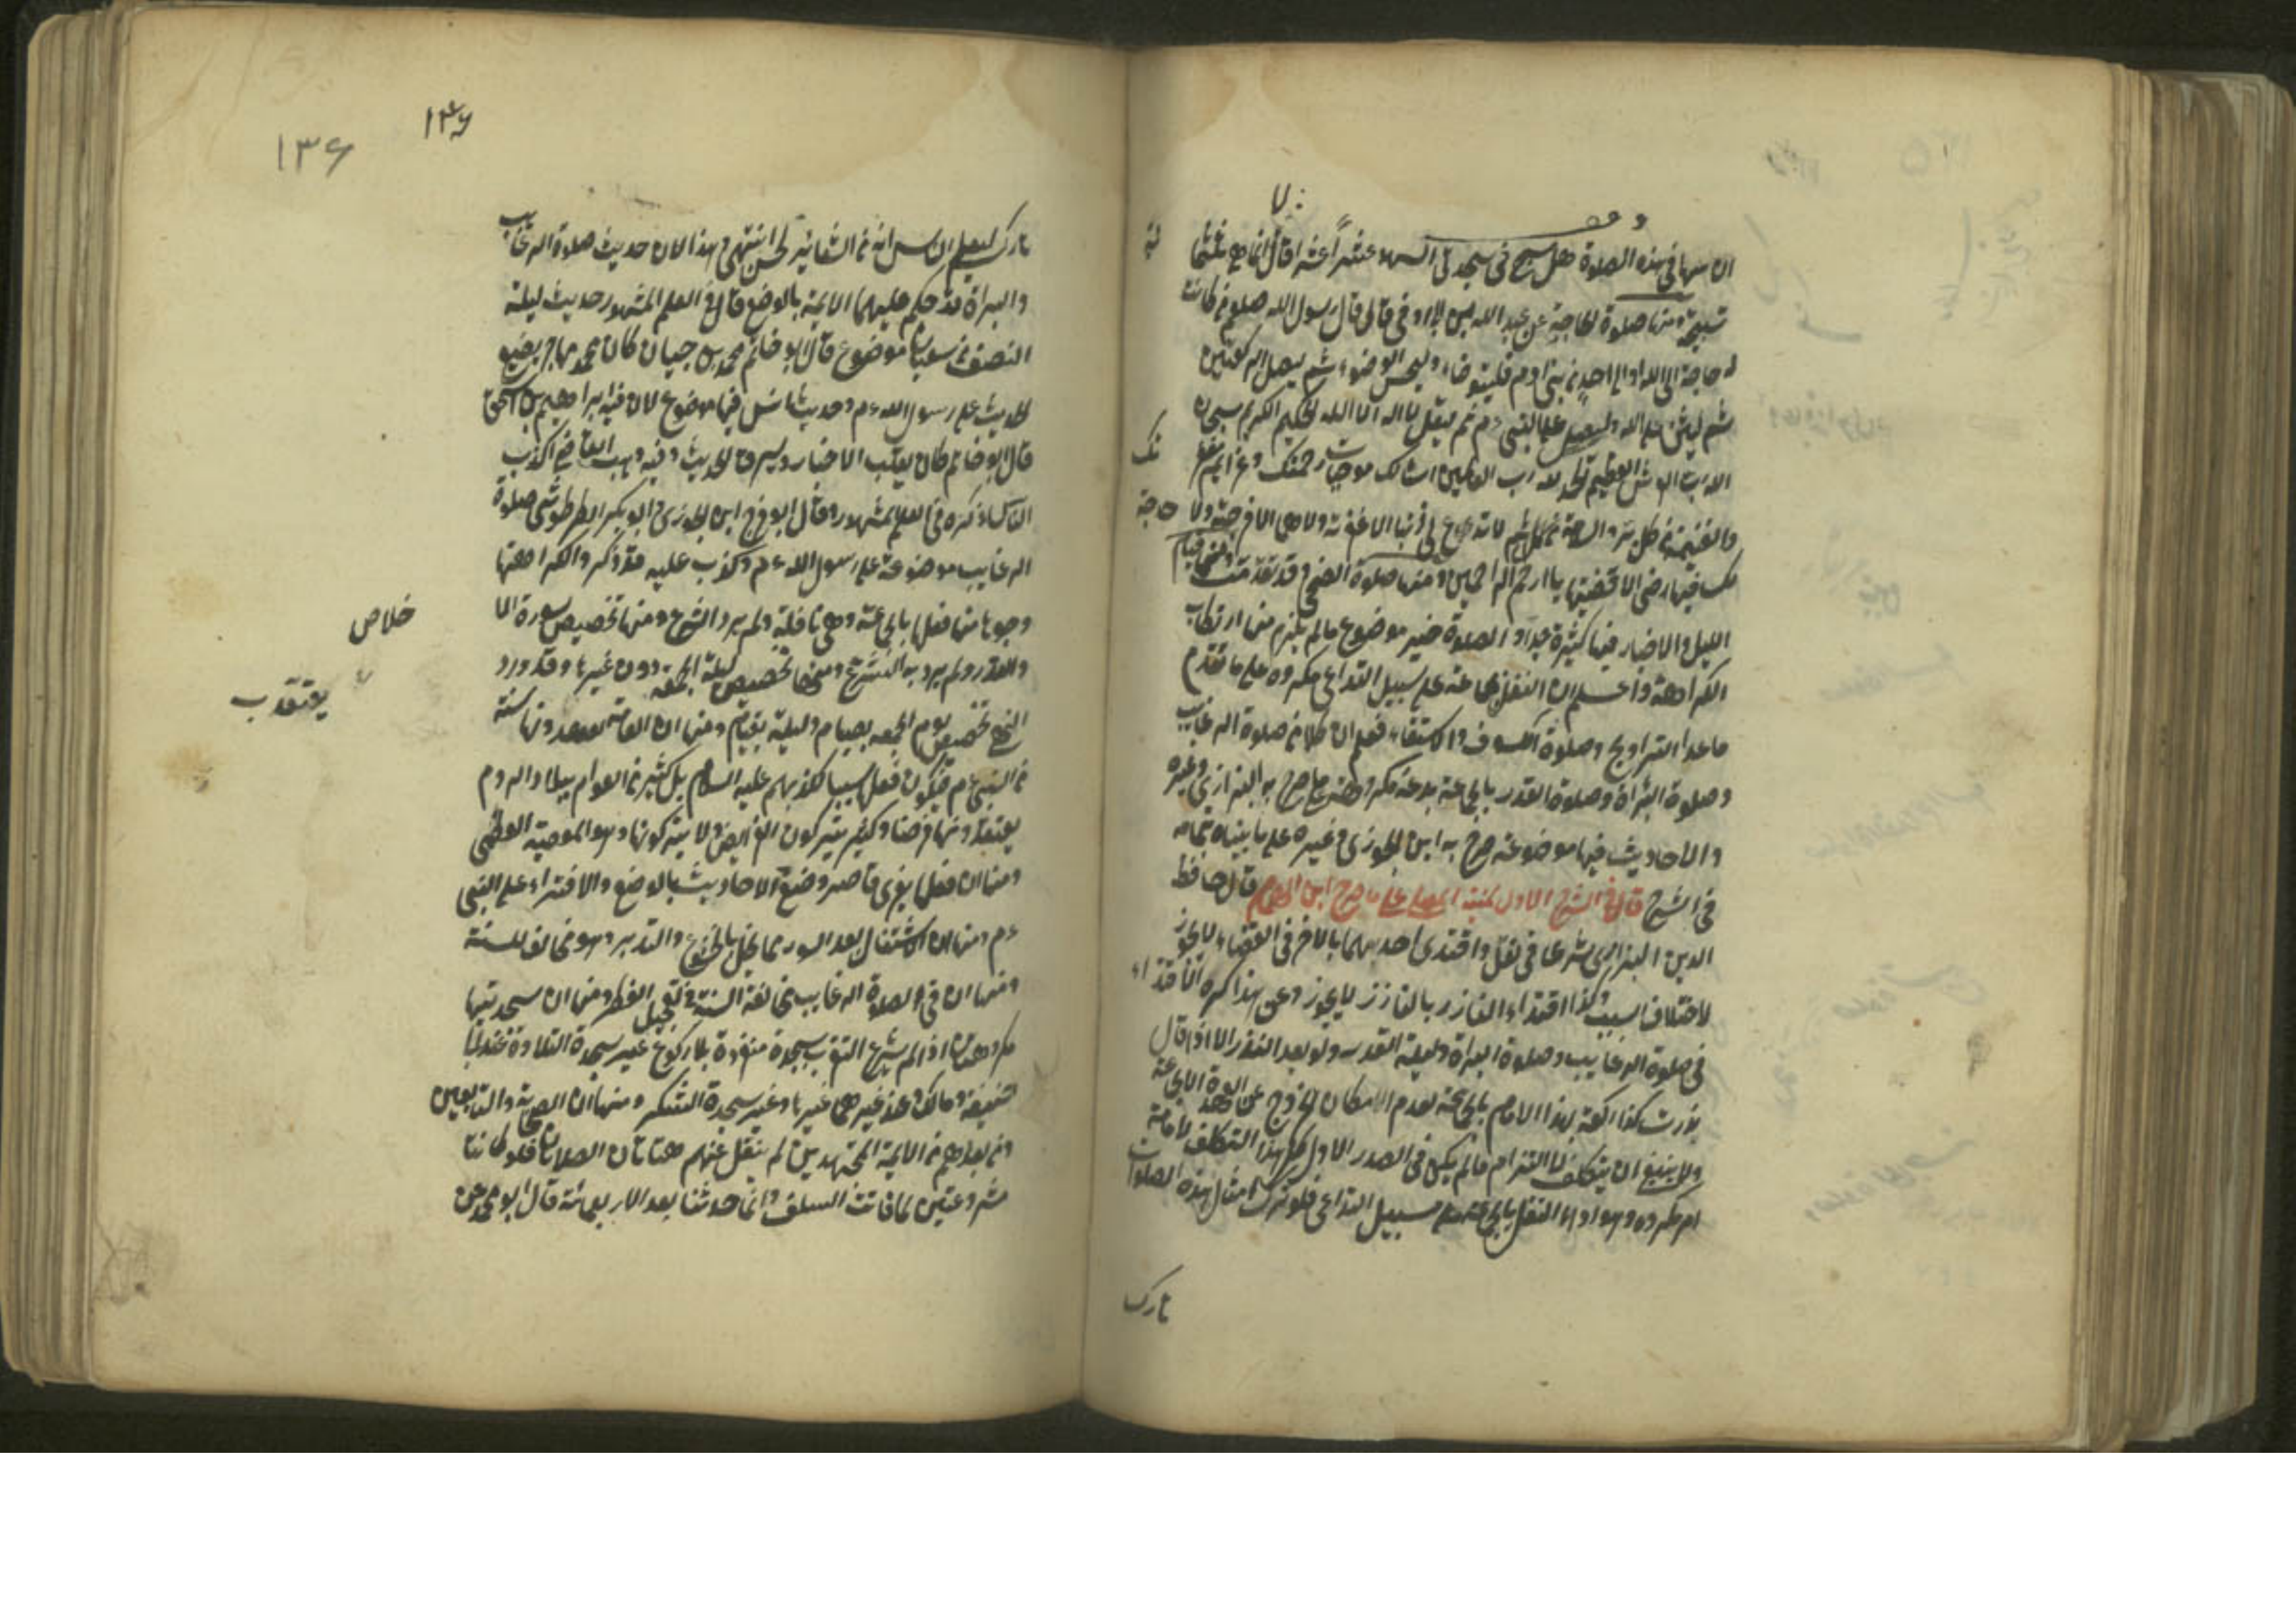 وقف
ان سها في هذه الصلوة هل يسبح في سجدتي السهو عشرا عشرا قال انما هي ثلثمائة
تسبيحة ومنها صلوة الحاجة عن عبد الله بن ابي اوفى قال قال رسول الله صلعم من كانت
له حاجة الى الله او الى احد من بني ادم فليتوضأ وليحسن الوضوء ثم ليصل ركعتين
ثم ليثن على الله وليصل على النبي ءم ثم ليقل لا اله الا الله الحليم الكريم سبحان
الله رب العرش العظيم الحمد لله رب العلمين اسالك موجبات رحمتك وعزايم مغفرتك
والغنيمة من كل بر والسلامة من كل اثم لا تدع لي ذنبا الا غفرته ولا هما الا فرجته ولا حاجة
لك فيها رضى الا قضيتها يا ارحم الراحمين ومنها صلوة الضحى وقد تقدمت ومنها قيام
الليل والاخبار فيها كثيرة جدا والصلوة خير موضوع ما لم يلزم منها ارتكاب
الكراهة واعلم ان النفل بالجماعة على سبيل التداعي مكروه على ما تقدم
ما عدا التراويح وصلوة الكسوف والاستسقاء فعلم ان كلا من صلوة الرغايب
وصلوة البراة وصلوة القدر بالجماعة بدعة مكروهة صرح به البزازي وغيره
والاحاديث فيها موضوعة صرح به ابن الجوزي وغيره على ما بيناه بتمامه
في الشرح قال في الشرح الاول لمنية المصلي على ما صرح ابن الهمام قال حافظ
الدين البزازي شرعا في نفل واقتدى احدهما بالاخر في القضاء لا يجوز
لاختلاف السبب وكذا اقتداء الناذر بالناذر لا يجوز وعن هذا كره الاقتداء
في صلوة الرغايب وصلوة البراة وليلة القدر ولو بعد النذر الا اذا قال
نذرت كذا ركعة بهذا الامام بالجماعة لعدم الامكان الخروج عن العهدة الا بالجماعة
ولا ينبغي ان يتكلف لالتزام ما لم يكن في الصدر الاول كل هذا التكلف لاقامة
امر مكروه وهو اداء النفل بالجماعة على سبيل التداعي فلو ترك امثال هذه الصلوات
تارك
١٣٦
١٣٦
تارك ليعلم الناس انه من الشعائر لحسن انتهى وهذا لان حديث صلوة الرغايب
والبراة قد حكم عليهما الايمة بالوضع قال في العلم المشهور حديث ليلة
النصف من شعبان موضوع قال ابو حاتم محمد بن حبان كان محمد بن مهاجر يضع
الحديث على رسول الله ءم وحديث انس فيها موضوع لان فيه ابراهيم بن اسحق
قال ابو حاتم كان يقلب الاخبار ويسرق الحديث وفيه وهب القاضي اكذب
الناس ذكره في العلم المشهور وقال ابو الفرج ابن الجوزي وابو بكر الطرطوشي صلوة
الرغايب موضوعة على رسول الله ءم وكذب عليه وقد ذكروا لكراهتها
وجوها منها فعلها بالجماعة وهي نافلة ولم يرد الشرع ومنها تخصيص سورة الاخلاص
والقدر ولم يرد به الشرع ومنها تخصيص ليلة الجمعة دون غيرها وقد ورد
النهي تخصيص يوم الجمعة بصيام وليلته بقيام ومنها ان العامة يعتقدونها سنة
من النبي ءم فيكون فعلها سببا لكذبهم عليه السلام بل كثير من العوام ببلاد الروم
يعتقدونها فرضا وكثير يتركون الفرايض ولا يتركونها وهو المصيبة العظمى
ومنها ان فعلها يغري قاصد وضع الاحاديث بالوضع والافتراء على النبي
ءم ومنها ان الاشتغال بعد السور مما يخل بالخشوع والتدبر وهو مخالف للسنة
ومنها ان في صلوة الرغايب مخالفة السنة في تعجيل الفطر ومنها ان سجدتيها
مكروهتان اذ لم يشرع التقرب بسجدة منفردة بلا ركوع غير سجدة التلاوة عند ابي
حنيفة ومالك وعند غيرهما غيرها وغير سجدة الشكر ومنها ان الصحابة والتابعين
ومن بعدهم من الايمة المجتهدين لم ينقل عنهم هاتان الصلاتان فلو كانتا
مشروعتين لما فاتتا السلف وانما حدثتا بعد الاربعمائة قال ابو محمد عن
خلاص
يعتقد